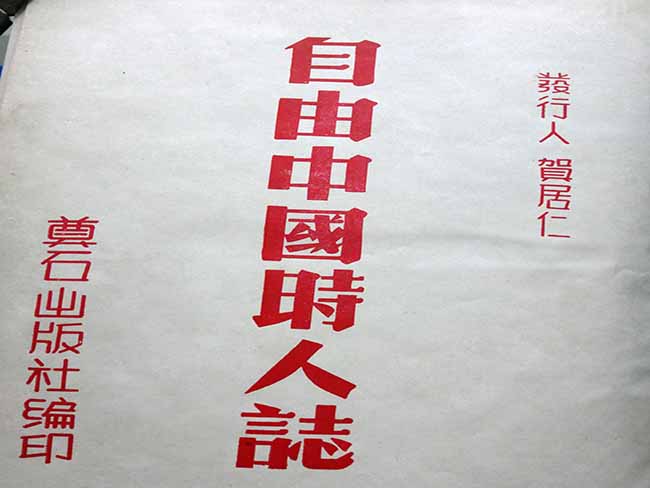 發行人 賀居仁
自由中國時人誌
奠石出版社編印